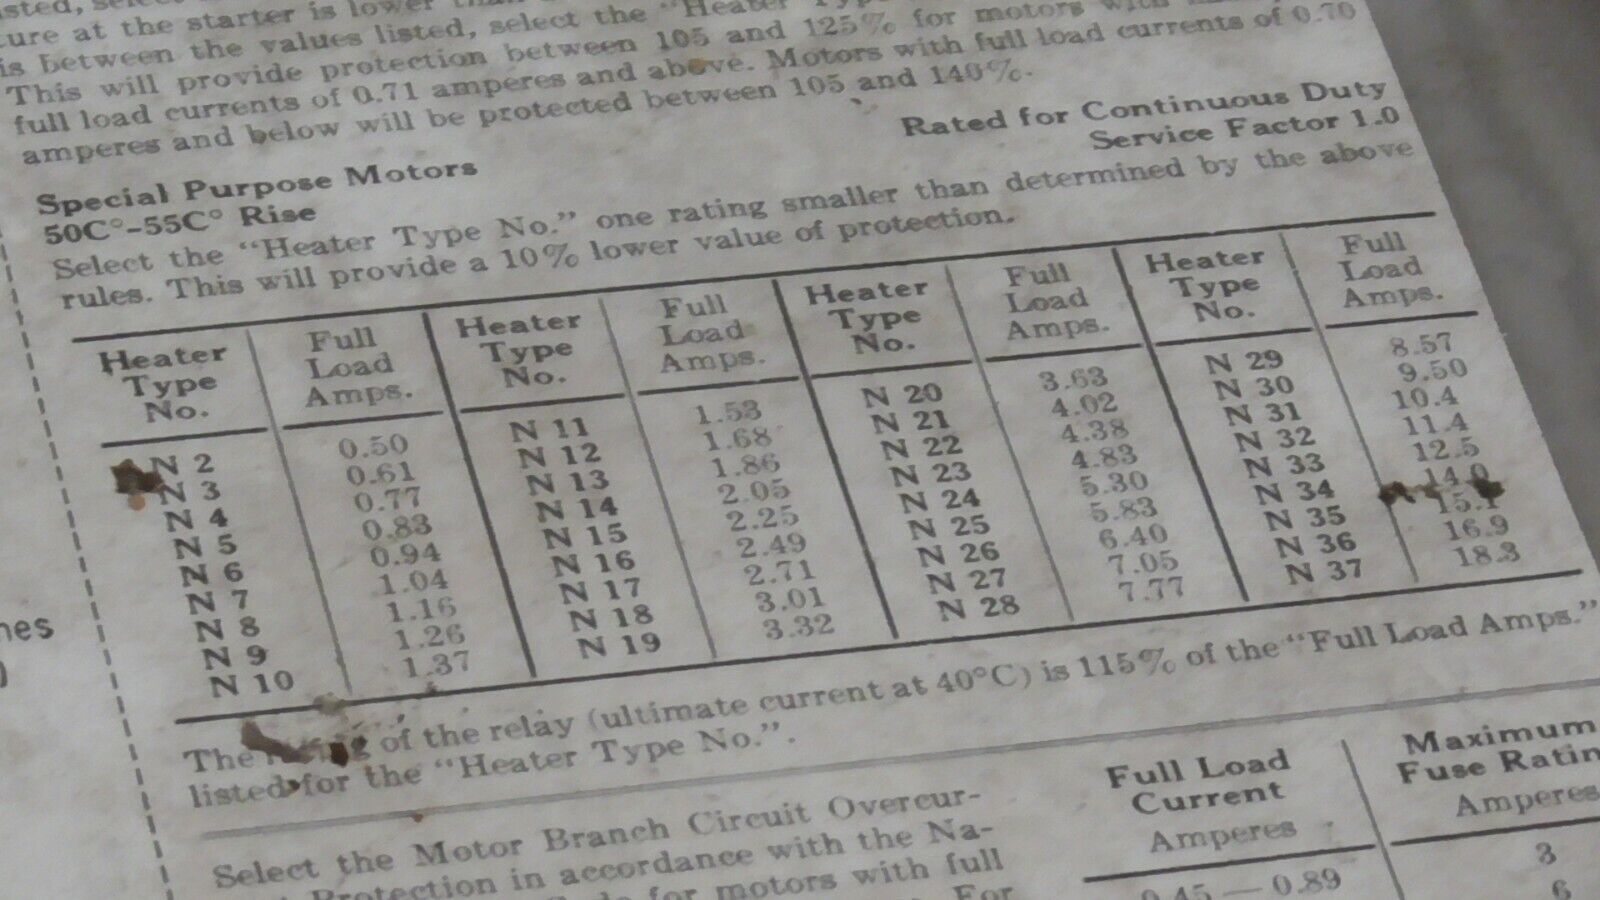 ture at the starter is lower than
is between the values listed, select the "Heater
This will provide protection between 105 and 125% for motors with
full load currents of 0.71 amperes and above. Motors with full load currents of 0.70
amperes and below will be protected between 105 and 140%.
Rated for Continuous Duty
Service Factor 1.0
Special Purpose Motors
50C°-55C° Rise
Select the "Heater Type No." one rating smaller than determined by the above
rules. This will provide a 10% lower value of protection.
Heater Type No. Full Load Amps. Heater Type No. Full Load Amps. Heater Type No. Full Load Amps. Heater Type No. Full Load Amps.
N 2 0.50 N 11 1.53 N 20 3.63 N 29 8.57
N 3 0.61 N 12 1.68 N 21 4.02 N 30 9.50
N 4 0.77 N 13 1.86 N 22 4.38 N 31 10.4
N 5 0.83 N 14 2.05 N 23 4.83 N 32 11.4
N 6 0.94 N 15 2.25 N 24 5.30 N 33 12.5
N 7 1.04 N 16 2.49 N 25 5.83 N 34 14.0
N 8 1.16 N 17 2.71 N 26 6.40 N 35 15.1
N 9 1.26 N 18 3.01 N 27 7.05 N 36 16.9
N 10 1.37 N 19 3.32 N 28 7.77 N 37 18.3
The rating of the relay (ultimate current at 40°C) is 115% of the "Full Load Amps."
listed for the "Heater Type No.".
Select the Motor Branch Circuit Overcur-
Protection in accordance with the Na-
for motors with full
For
Full Load
Current
Amperes
0.45 — 0.89
Maximum
Fuse Ratin
Amperes
3
6